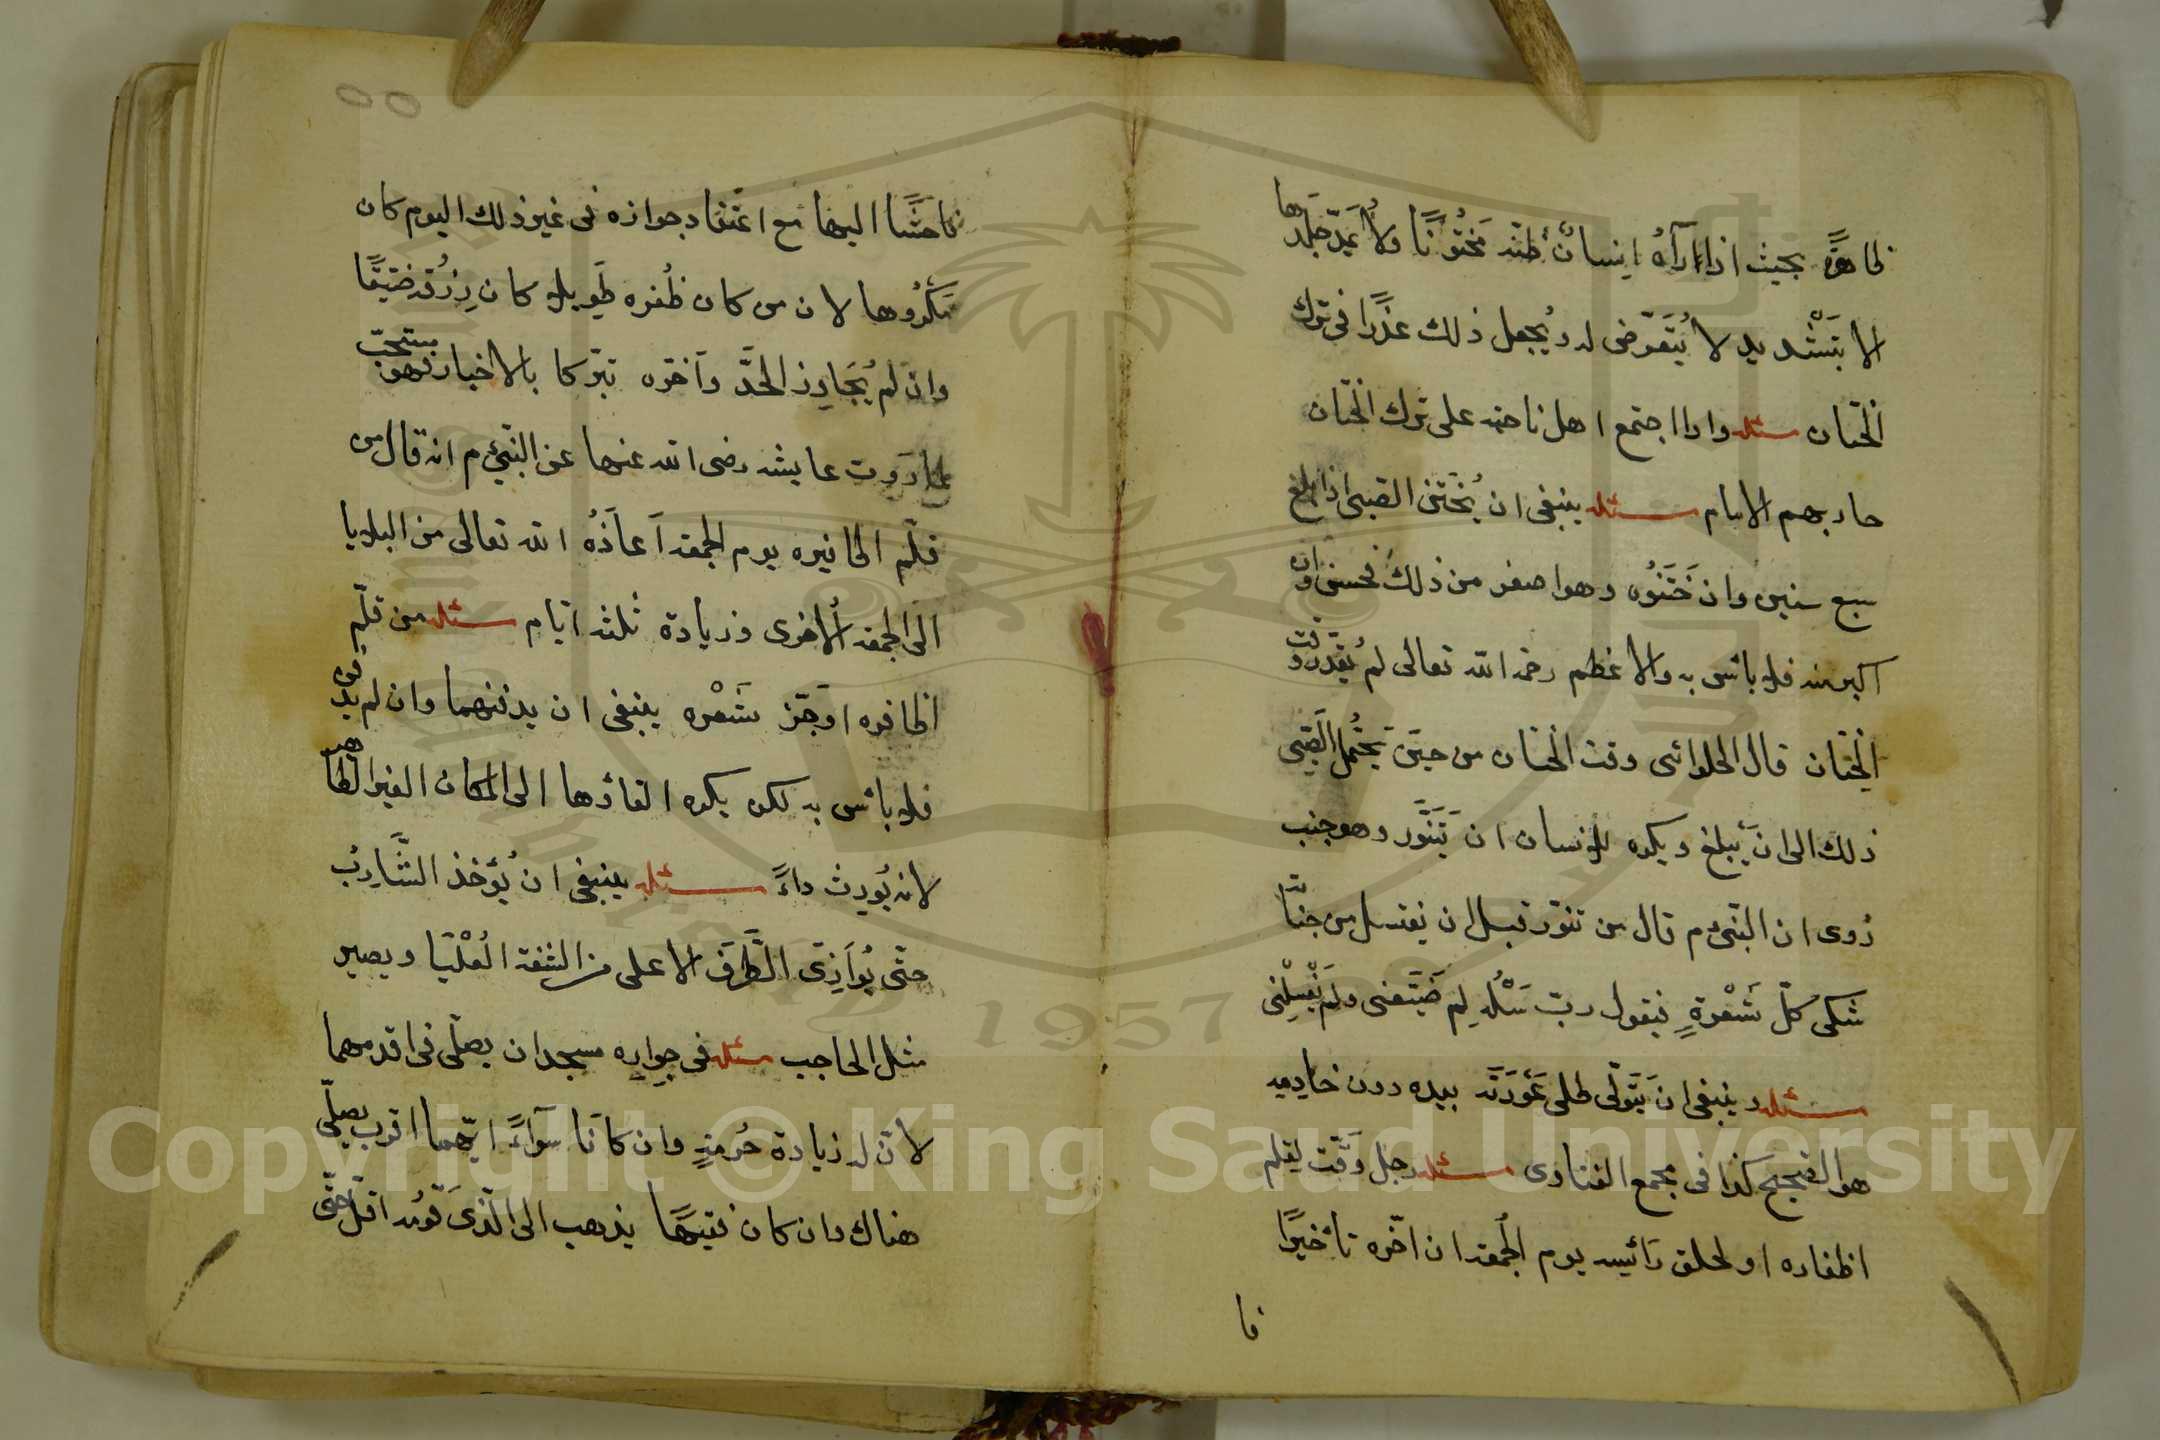 ظاهرةً بحيث اذا رآهُ اِنسانٌ ظنّه مَختُونًا ولا يُمَدّ جلدها
الا بتَشْديد لا يُتَعَرّض له ويُجعل ذلك عذرًا فى ترك
الختان مسئله واذا اجتمع اهل ناحيه على ترك الختان
حاربهم الامام مسئله ينبغى ان يُختَتن الصبى اذا بلغ
سبع سنين وان خَتَنُوه وهو اصغر من ذلك فحسن وان
اكبر منه فلا بائس به والاعظم رحمه الله تعالى لم يُقدّر وقت
الختان قال الحلوائى وقت الختان من حين يحتمل الصّبى
ذلك الى ان يبلغ ويكره للانسان ان يَتَنَوَّر وهو جنب
رُوى ان النبىّ م قال من تنوّر قبل ان يغتسل من جنابة
شكى كلّ شَعْرةٍ فيقول ربّ سَلْهُ لِمَ ضَيّعنى ولم يَغْسِلْنى
مسئله وينبغى ان يَتَولّى طلى عَوْرَته بيده دون خادِمِه
هو الصحيح كذا فى مجمع الفتاوى مسئله رجل وَقّت لقلم
اظفاره او لحلق رَائيسه يوم الجُمعة ان اخّره تأخيرًا
فا
فاحشًا اليها مع اعتقاد جوازه فى غير ذلك اليوم كان
مَكْرُوها لان من كان ظُفره طَويلا كان رِزْقه ضَيّقًا
وان لم يُجَاوِز الحَدَّ وأخّره تبرّكا بالاخبار فهو مستحبّ
لما رَوَت عايشه رضى الله عنها عن النبىّ م انه قال من
قلّم اظافيره يوم الجمعة اَعاذَهُ الله تعالى من البلايا
الى الجمعة الاُخرى وزيادة ثلثه ايّام مسئله من قلّم
اظافره او جَزّ شَعْره ينبغى ان يدفنهما وان لم يدفن
فلا بائس به لكن يكره القاؤها الى المكان الغير الطاهر
لانه يُورِث داءً مسئله ينبغى ان يُؤخذ الشَّارِبُ
حتّى يُوَازِىَ الطَّرفَ الاعلى من الشفة العُلْيَا ويصير
مثل الحاجب مسئله فى جِوارِه مسجدان يصلّى فى اقدمهما
لانّ له زيادة حُرمةٍ وان كانَا سَواءً ايّهما اقرب يصلّى
هناك وان كان فقيهًا يذهب الى الّذى قَومُه اقلّ حتّى
Copyright © King Saud University
1957